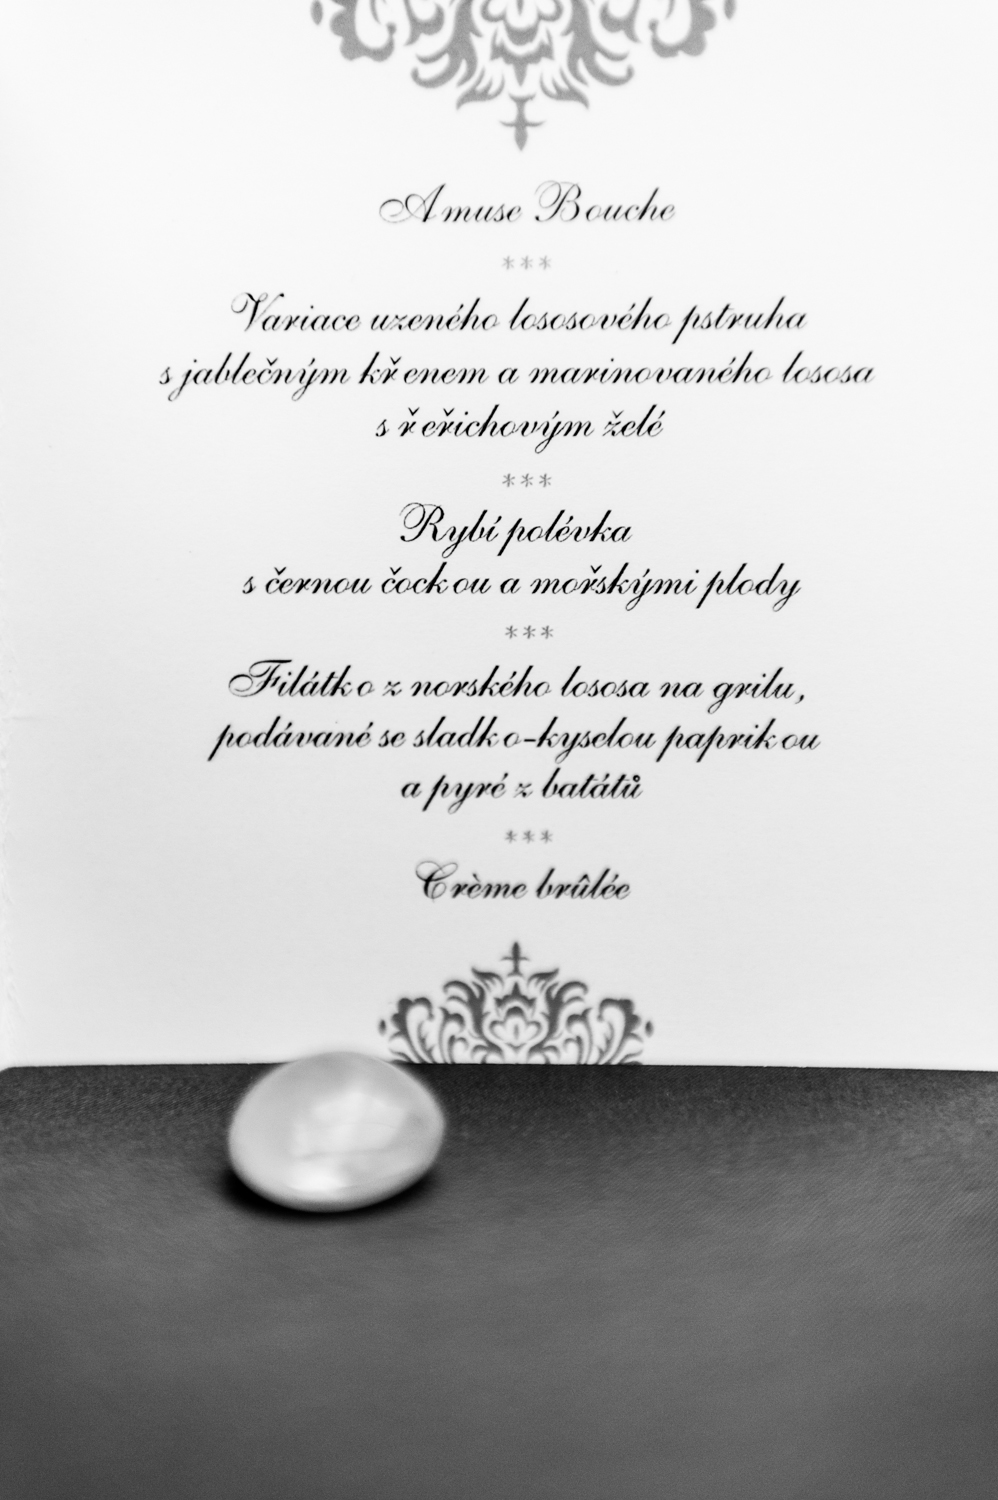 Amuse Bouche
***
Variace uzeného lososového pstruha
s jablečným křenem a marinovaného lososa
s řeřichovým želé
***
Rybí polévka
s černou čockou a mořskými plody
***
Filátko z norského lososa na grilu,
podávané se sladko-kyselou paprikou
a pyré z batátů
***
Crème brûlée